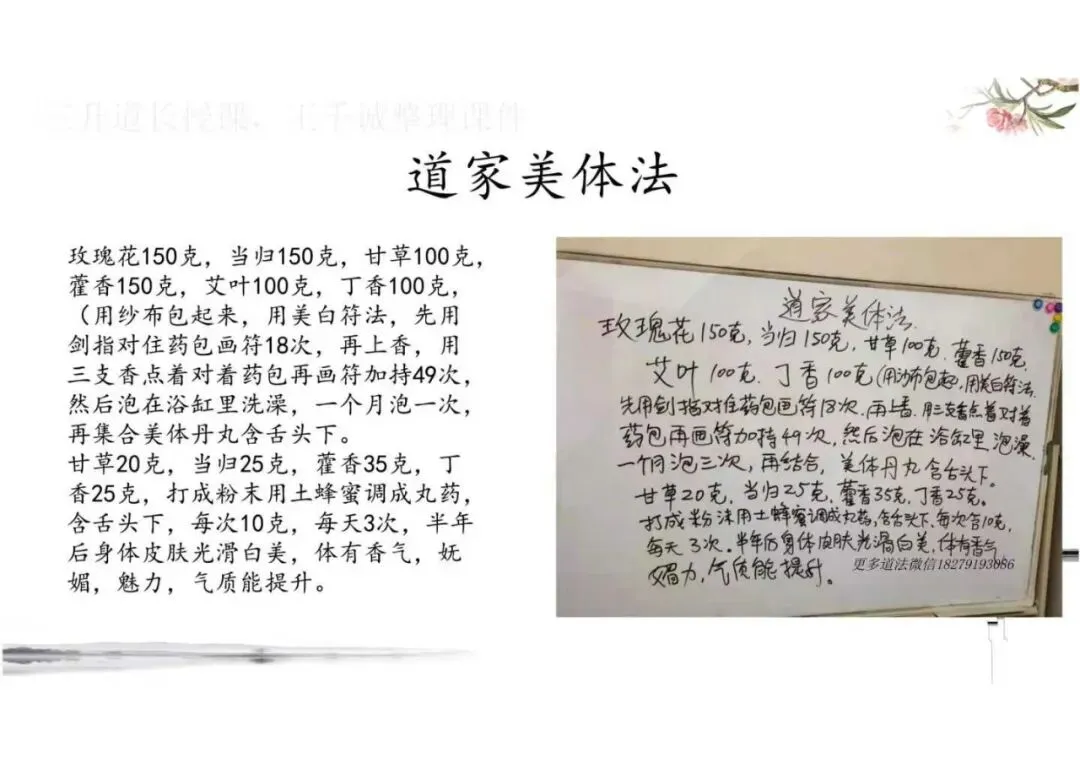 道家美体法
玫瑰花150克，当归150克，甘草100克，
藿香150克，艾叶100克，丁香100克，
（用纱布包起来，用美白符法，先用
剑指对住药包画符18次，再上香，用
三支香点着对着药包再画符加持49次，
然后泡在浴缸里洗澡，一个月泡一次，
再集合美体丹丸含舌头下。
甘草20克，当归25克，藿香35克，丁
香25克，打成粉末用土蜂蜜调成丸药，
含舌头下，每次10克，每天3次，半年
后身体皮肤光滑白美，体有香气，妩
媚，魅力，气质能提升。
道家美体法.
玫瑰花150克,当归150克,甘草100克.藿香150克.
艾叶100克.丁香100克(用纱布包起,用美白符法.
先用剑指对住药包画符18次.再上香.用三支香点着对着
药包再画符加持49次,然后泡在浴缸里泡澡.
一个月泡三次,再结合,美体丹丸含舌头下。
甘草20克,当归25克,藿香35克,丁香25克。
打成粉沫用土蜂蜜调成丸药,含舌头下.每次含10克,
每天3次.半年后身体皮肤光滑白美,体有香气
媚力,气质能提升。
更多道法微信18279193086